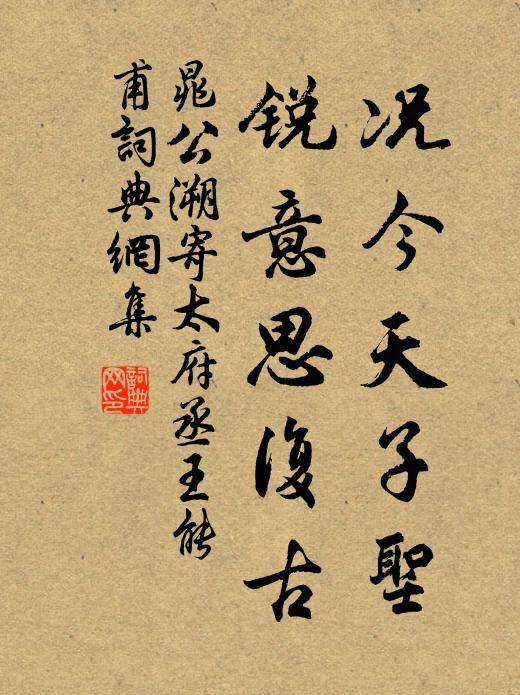 况今天子聖
銳意思復古
晁公溯寄太府丞王能
甫詞典網集
詞典
网印